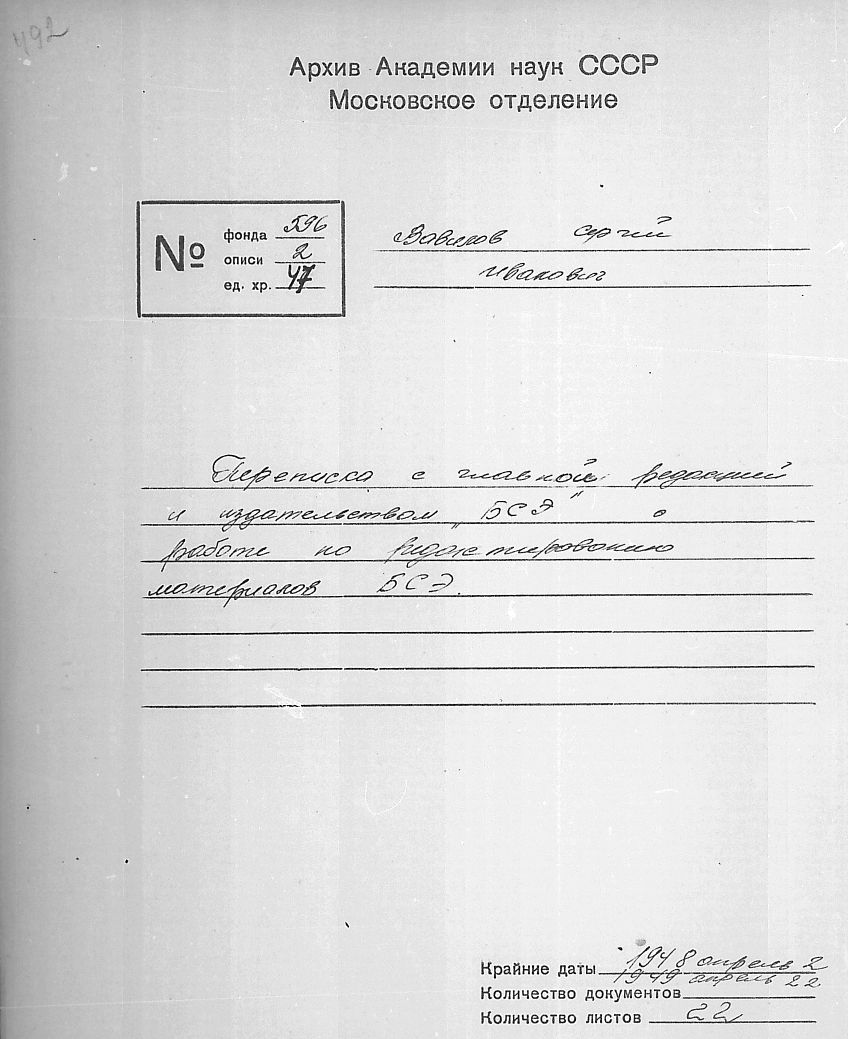 492
Архив Академии наук СССР
Московское отделение
№
фонда 596
описи 2
ед. хр. 47
Вавилов Сергей
Иванович
Переписка с главной редакцией
и издательством „БСЭ" о
работе по редактированию
материалов БСЭ.
Крайние даты 1948 апрель 2
1949 апрель 22
Количество документов
Количество листов 22